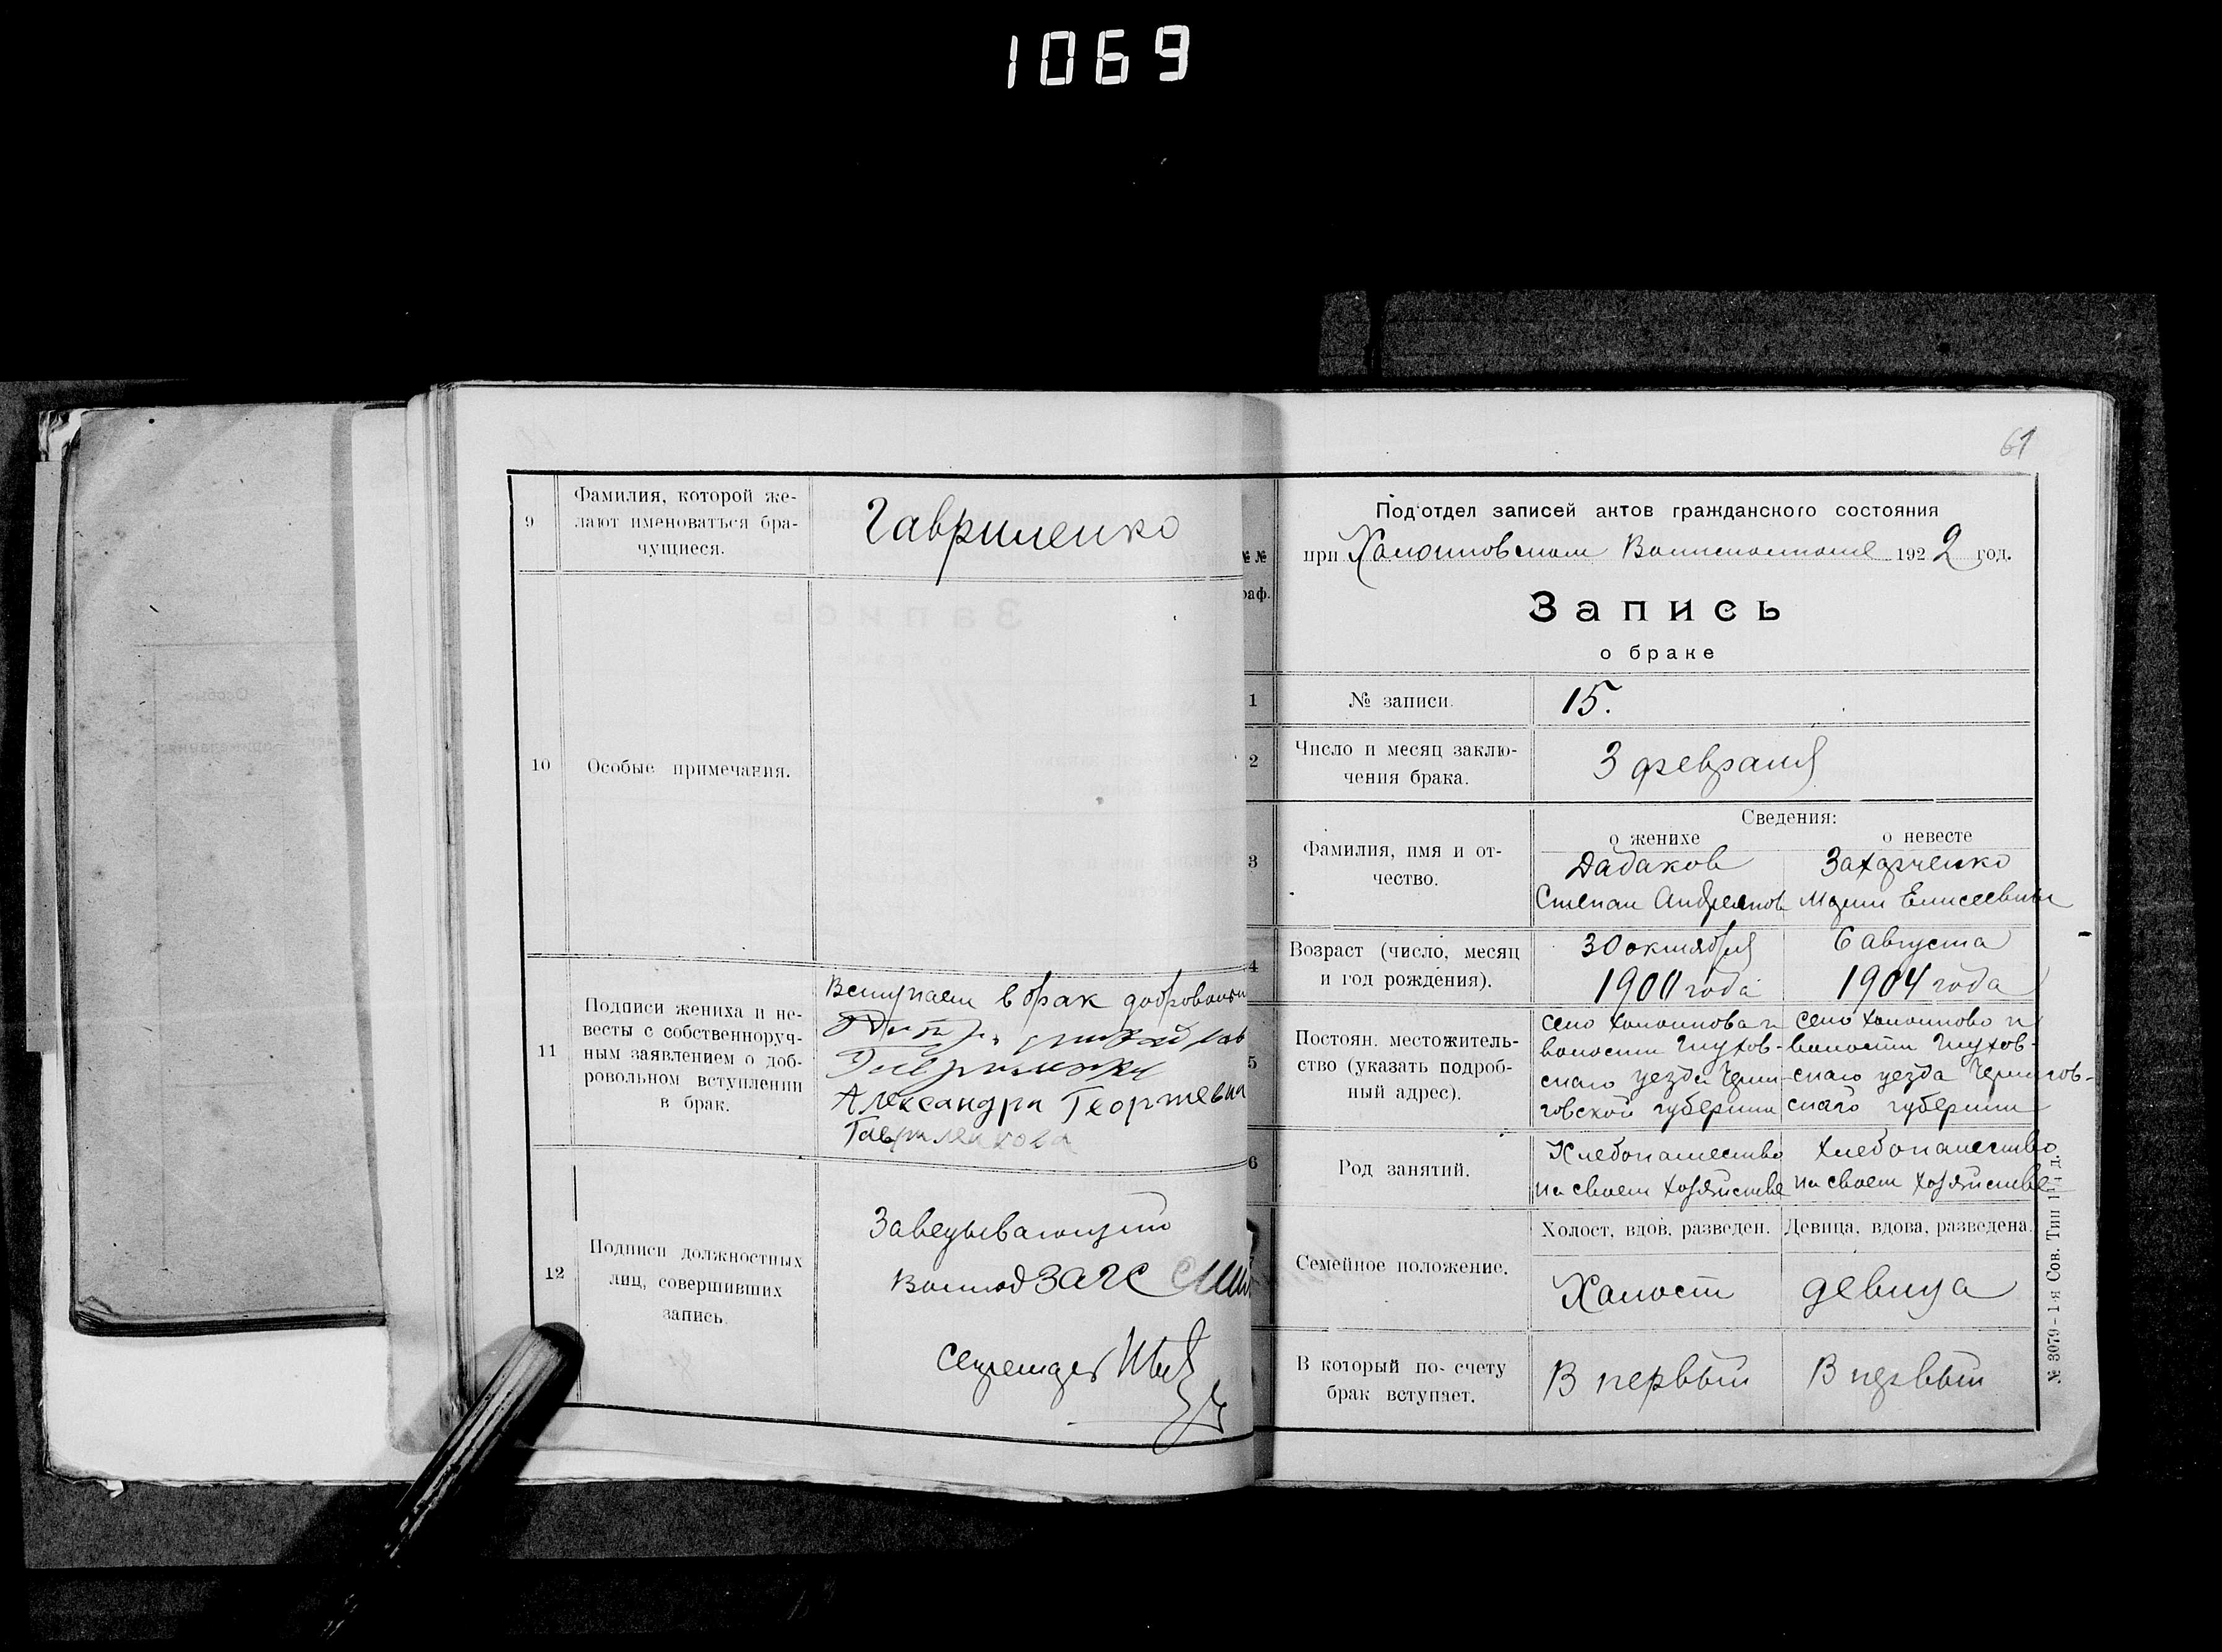 1069
9
Фамилия, которой же-
лают именоваться бра-
чущиеся.
Гавриленко
10
Особые примечания.
11
Подписи жениха и не-
весты с собственноруч-
ным заявлением о доб-
ровольном вступлении
в брак.
Вступаем в брак доброволь
Гавриленко
Александра Георгиевна
Гавриленкова
12
Подписи должностных
лиц, совершивших
запись.
Заведывающий
ЗАГС
Секретарь
61
№№
раф.
Под'отдел записей актов гражданского состояния
при Волисполкоме 1922 год.
Запись
о браке
1
№ записи.
15.
2
Число и месяц заклю-
чения брака.
3 февраля
3
Фамилия, имя и от-
чество.
Сведения:
о женихе
о невесте
Дадаков
Степан Андреянов
Захарченко
Мария Елисеевна
4
Возраст (число, месяц
и год рождения).
30 октября
1900 года
6 августа
1904 года
5
Постоян. местожитель-
ство (указать подроб-
ный адрес).
село
волости Глухов-
скаго уезда Черни-
говской губернии
село
волости Глухов-
скаго уезда Чернигов-
скаго губернии
6
Род занятий.
Хлебопашество
на своем хозяйстве
Хлебопашество
на своем хозяйстве
Семейное положение.
Холост, вдов, разведен.
Девица, вдова, разведена.
Халост
девица
В который по- счету
брак вступает.
В первый
В первый
№ 3079 – 1-я Сов. Тип